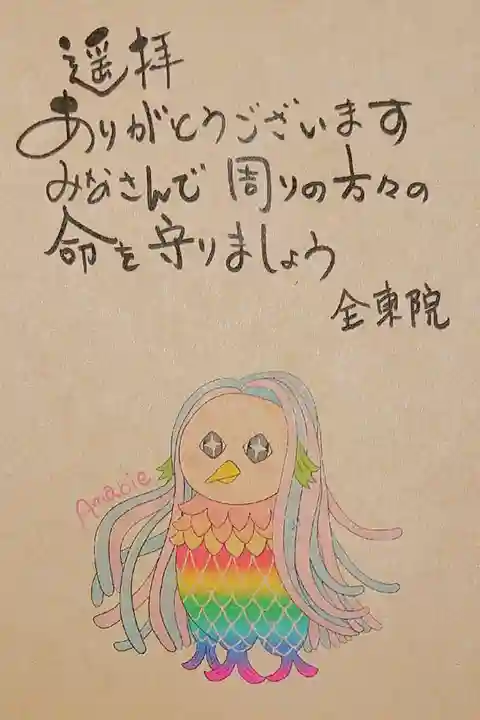 遥拝
ありがとうございます
みなさんで周りの方々の
命を守りましょう
全東院
Amabie